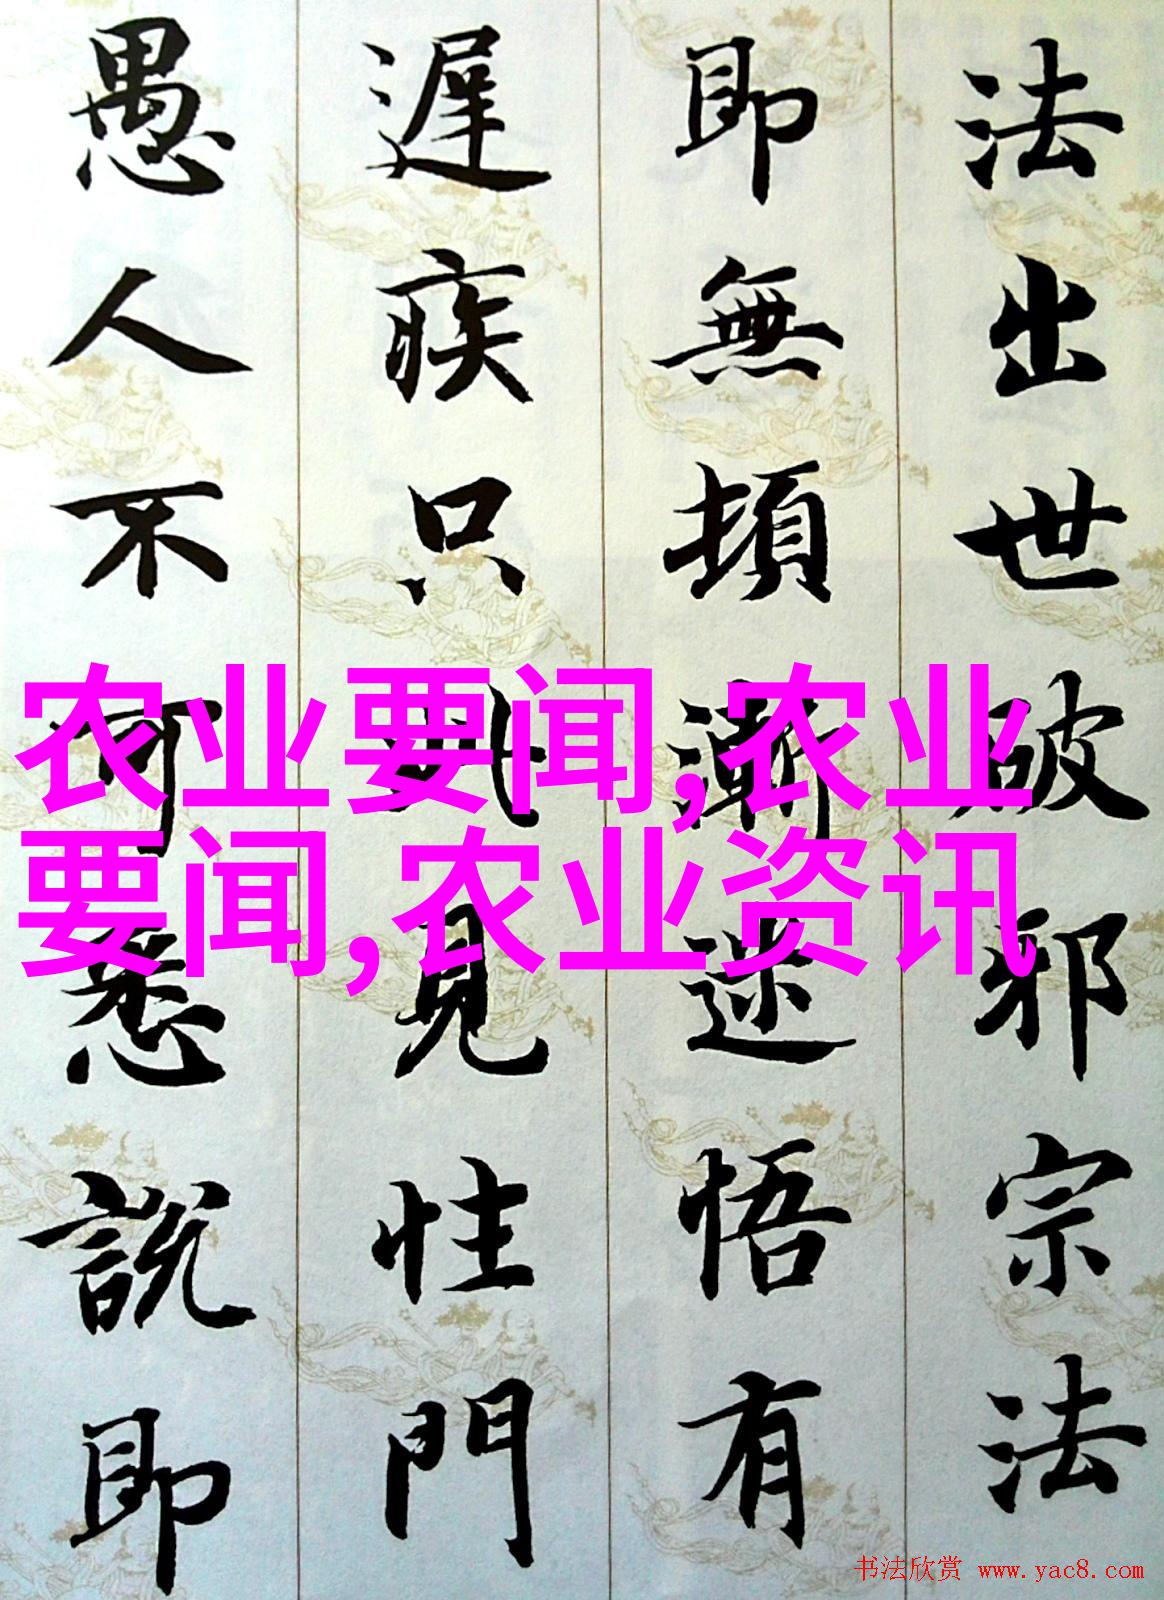 法出世破邪宗法
即無頓漸迷悟有
遲疾只此見性門
愚人不可悉說即
农业要闻,农业
要闻,农业资讯
书法欣赏 www.yac8.com